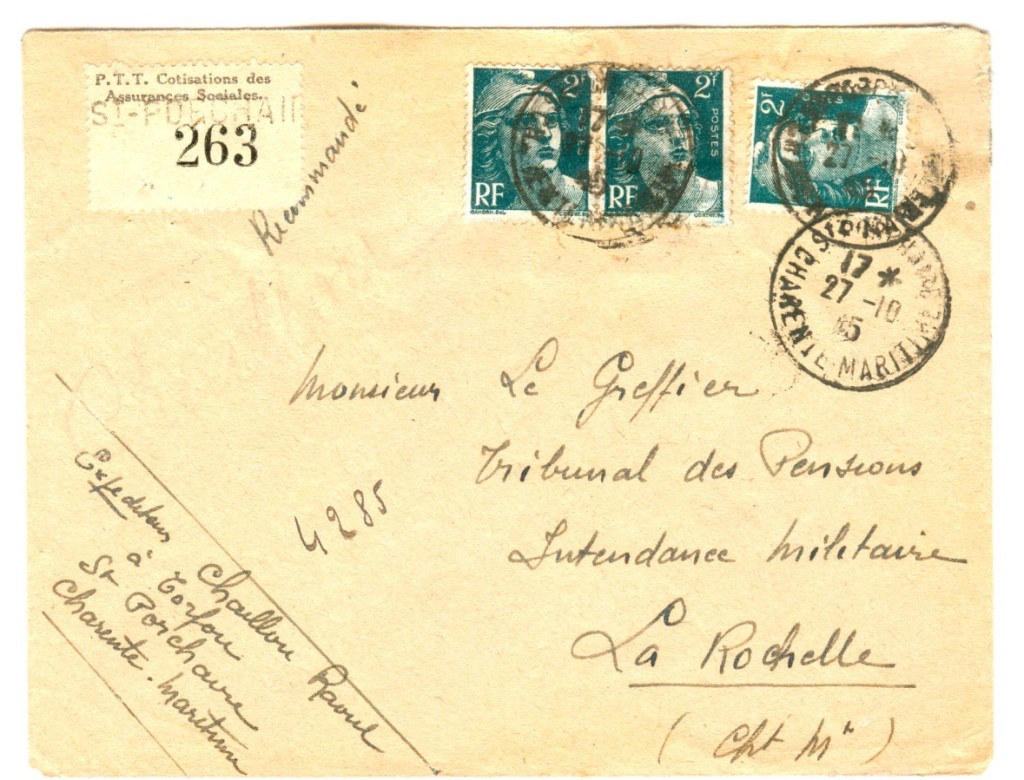 P.T.T. Cotisations des
Assurances Sociales.
St-PORCHAIRE
263
Recommandé
2F
POSTES
RF
2F
POSTES
RF
2F
POSTES
RF
17 *
27 -10
45
CHARENTE-MARITIME
Monsieur Le Greffier
Tribunal des Pensions
Intendance Militaire
La Rochelle
(Cht Mr)
4285
Expediteur Chaillou Raoul
à
St Porchaire
Charente-Maritime